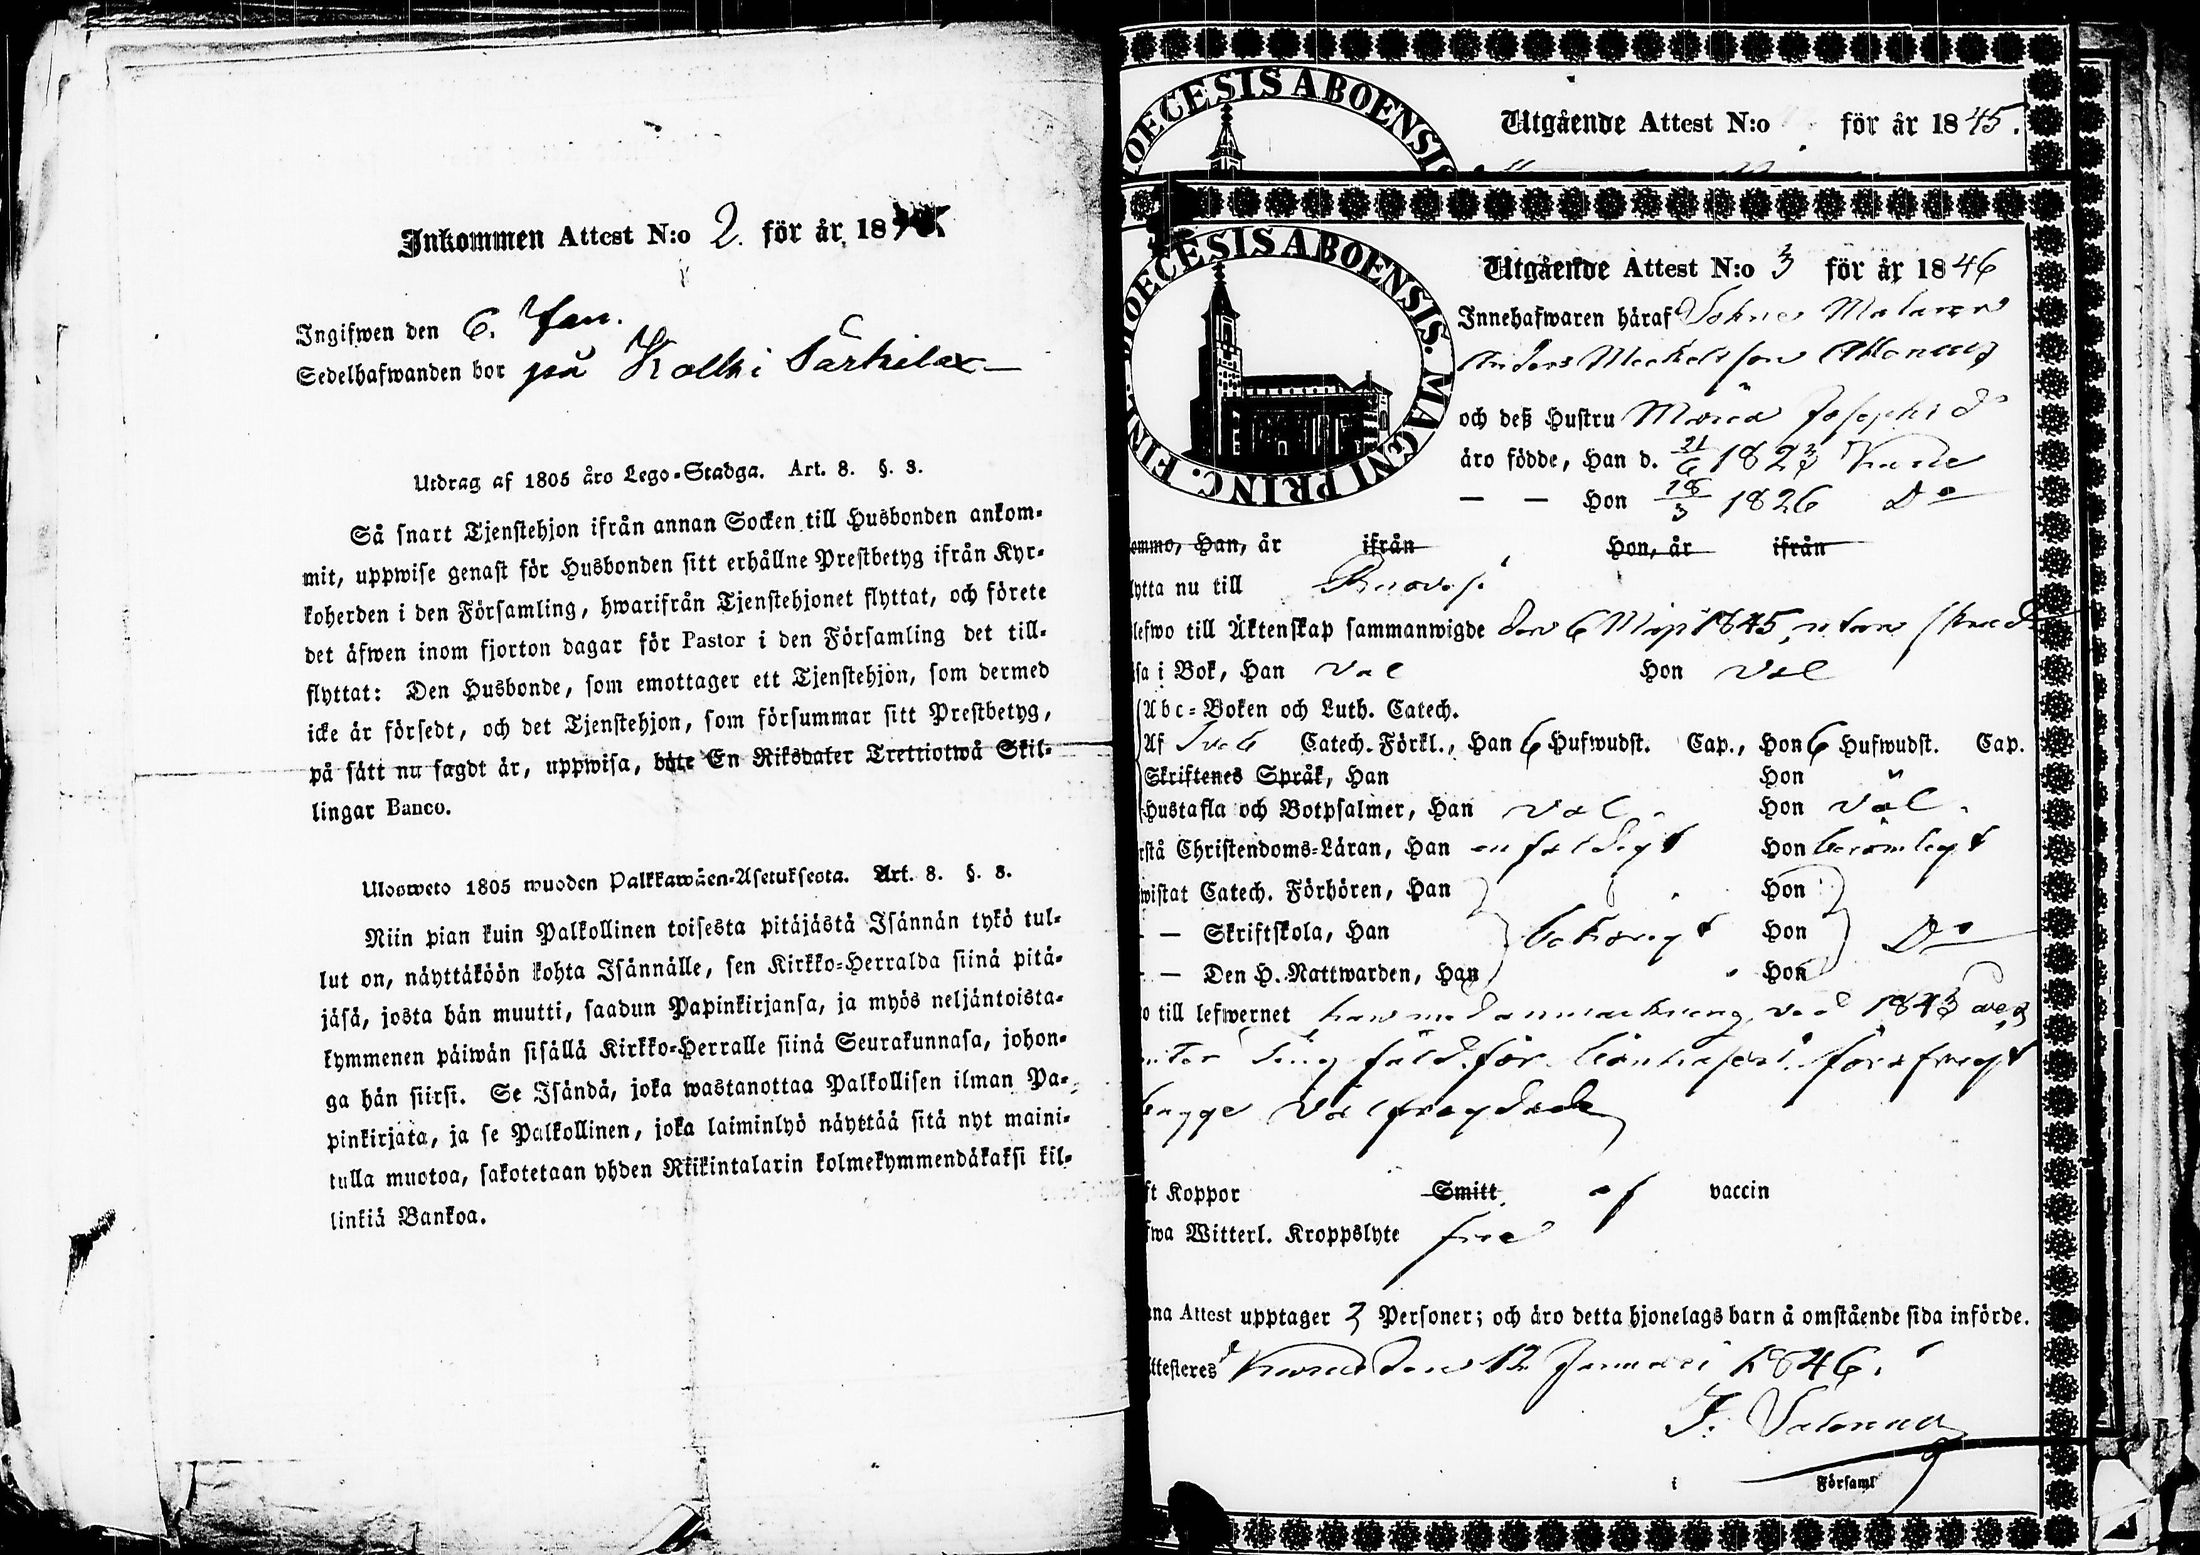 Inkommen Attest N:o 2. för år 18
Ingifwen den 6. Jan.
Sedelhafwanden bor på Kolki Särkilax
Utdrag af 1805 åro Lego-Stadga. Art. 8. §. 3.
Så snart Tjenstehjon ifrån annan Socken till Husbonden ankom-
mit, uppwise genast för Husbonden sitt erhållne Prestbetyg ifrån Kyr-
koherden i den Församling, hwarifrån Tjenstehjonet flyttat, och förete
det äfwen inom fjorton dagar för Pastor i den Församling det till-
flyttat: Den Husbonde, som emottager ett Tjenstehjon, som dermed
icke är försedt, och det Tjenstehjon, som försummar sitt Prestbetyg,
på sätt nu sagdt är, uppwisa, böte En Riksdaler Trettiotwå Skil-
lingar Banco.
Ulosweto 1805 wuoden Palkkawäen-Asetuksesta. Art. 8. §. 3.
Niin pian kuin Palkollinen toisesta pitäjästä Isännän tykö tul-
lut on, näyttäköön kohta Isännälle, sen Kirkko-Herralda siinä pitä-
jäsä, josta hän muutti, saadun Papinkirjansa, ja myös neljäntoista-
kymmenen päiwän sisällä Kirkko-Herralle siinä Seurakunnasa, johon-
ga hän siirsi. Se Isändä, joka wastanottaa Palkollisen ilman Pa-
pinkirjata, ja se Palkollinen, joka laiminlyö näyttää sitä nyt maini-
tulla muotoa, sakotetaan yhden Riikintalarin kolmekymmendäkaksi kil-
linkiä Bankoa.
DIOECESIS ABOENSIS
Utgående Attest N:o för år 1845.
DIOECESIS ABOENSIS. MAGNI PRINC. FINL.
Utgående Attest N:o 3 för år 1846
Innehafwaren häraf Sokne Målaren
Anders Mickelsson
och deß Hustru Maria Josephs dr
äro födde, Han d. 21/6 1823
— — Hon 18/3 1826 Do
ommo, Han, år ifrån Hon, år ifrån
lytta nu till
lefwo till Äktenskap sammanwigde den 6 1845, utan
sa i Bok, Han väl Hon väl
Abc-Boken och Luth. Catech.
Af Sveb Catech. Förkl., Han 6 Hufwudst. Cap., Hon 6 Hufwudst. Cap.
Skriftenes Språk, Han Hon
Hustafla och Botpsalmer, Han väl. Hon väl.
rstå Christendoms-Läran, Han enfaldigt Hon berömligt
wistat Catech. Förhören, Han Hon
— — Skriftskola, Han behörigt Hon Do
— — Den H. Nattwarden, Han Hon
o till lefwernet han med anmärkning, vid 1843
Ting fäld för
begge välfrägdade
ft Koppor Smitt af vaccin
fwa Witterl. Kroppslyte frie
na Attest upptager 3 Personer; och äro detta hjonelags barn å omstående sida införde.
ttesteres den 12 Januari 1846.
F. Salonius
i Församl